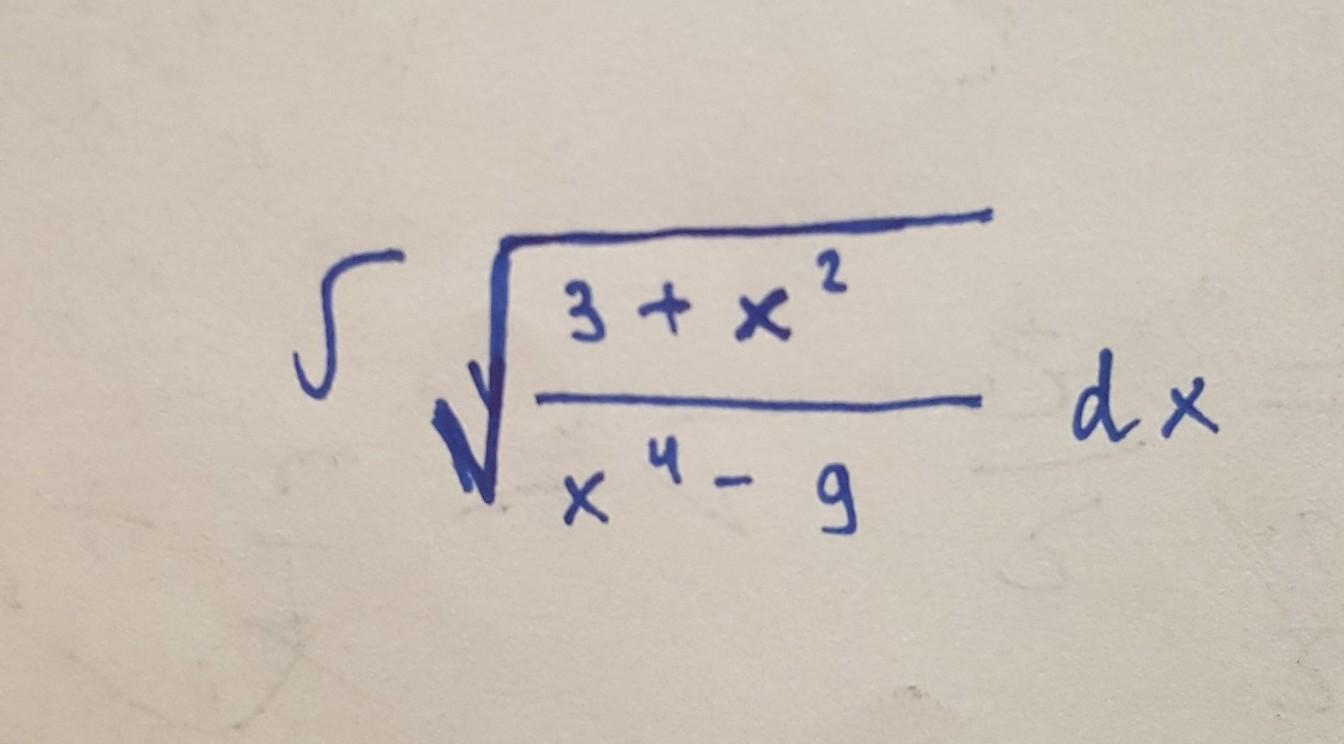 ∫ √(3 + x² / x⁴ - 9) dx